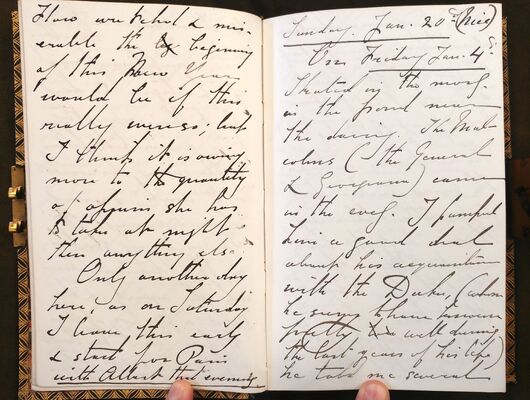 How wretched & mis-
erable the beginning
of this New Year
would be if this
really were so; but
I think it is owing
more to th quantity
of opium she has
to take at night
then anything els
Only another day
here as on Saturday
I leave this early
& start for Paris
with Albert that evening
Sunday. Jan. 20th (Nice)
On Friday Jan. 4th
Skated in the morng
on the pond near
the dairy. The Mal-
colms (the General
& Georgiana) came
in the eveg. I pumped
him a good deal
about his acquaintance
with the Duke, (whom
he seems to have known
pretty well during
the last years of his life)
he told me several